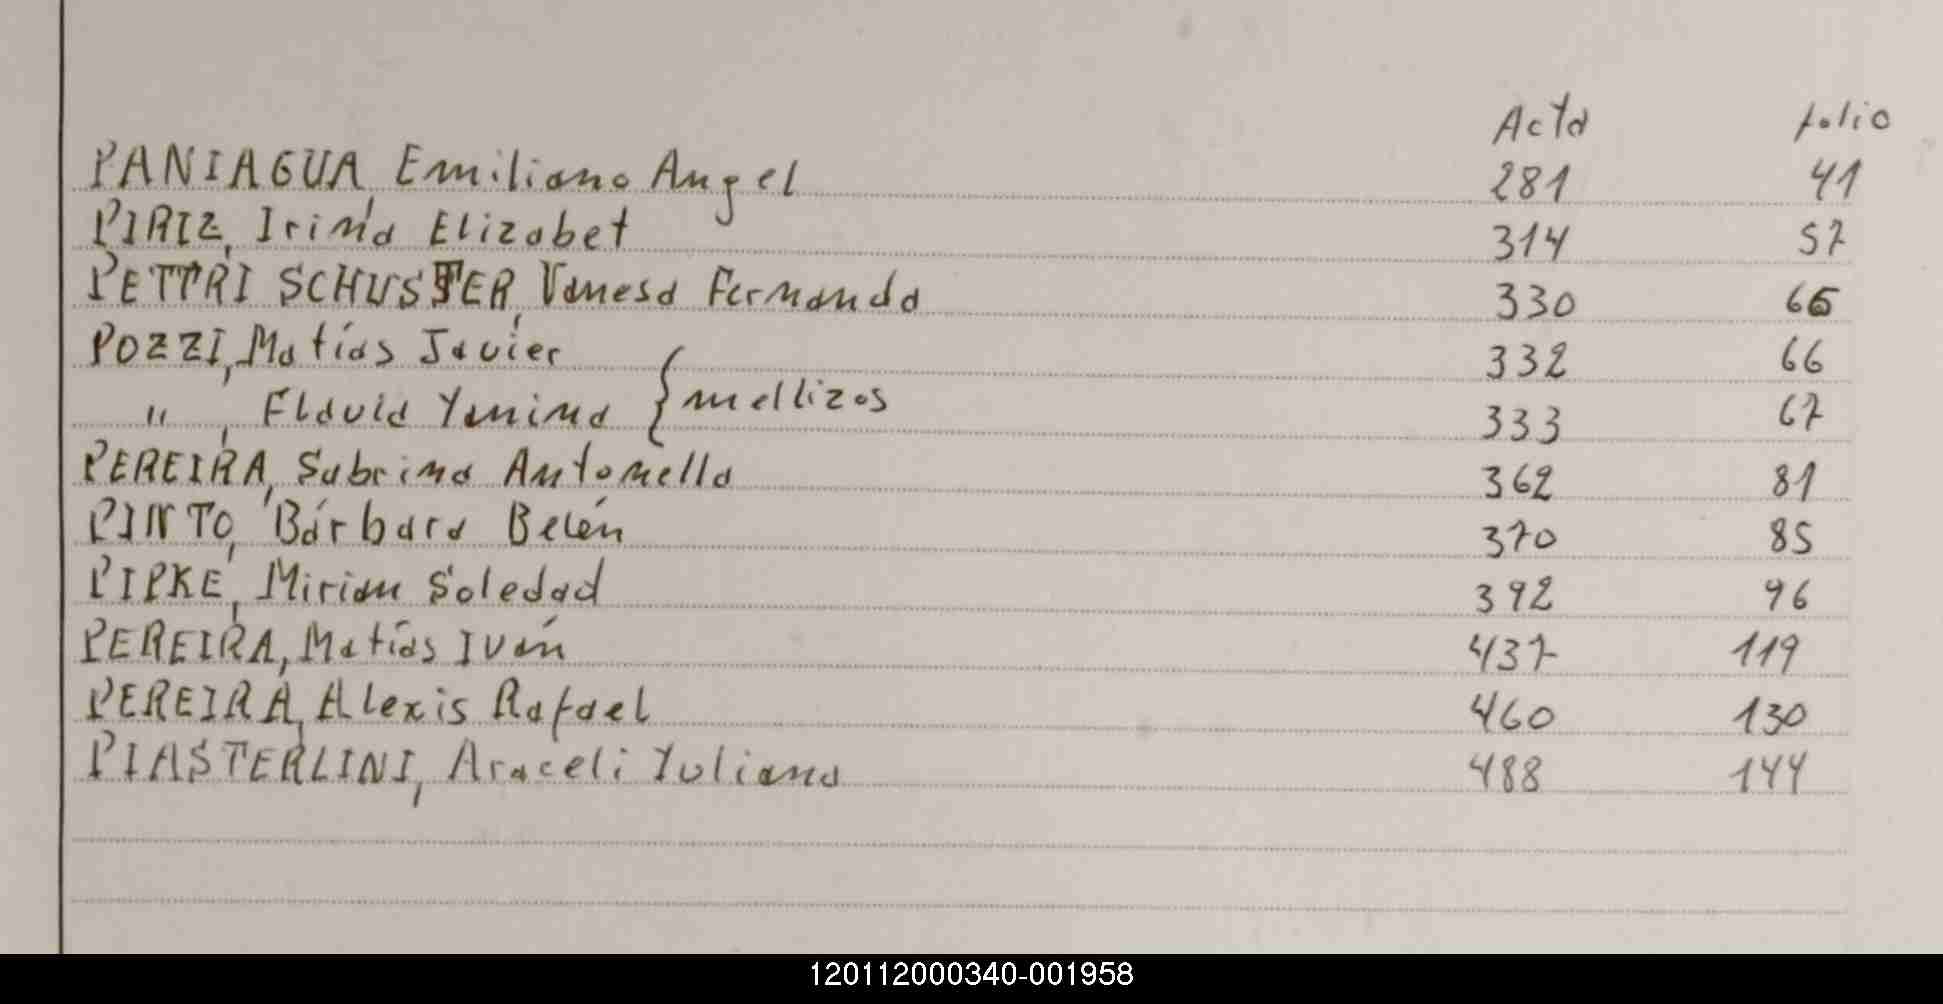 Acta folio
PANIAGUA, Emiliano Angel 281 41
PIRIZ, Irina Elizabet 314 57
PETTRI SCHUSTER, Vanesa Fernanda 330 65
POZZI, Matías Javier 332 66
" , Flavia Yanina { mellizos 333 67
PEREIRA, Sabrina Antonella 362 81
PINTO, Bárbara Belén 370 85
PIPKE, Miriam Soledad 392 96
PEREIRA, Matías Iván 437 119
PEREIRA, Alexis Rafael 460 130
PIASTERLINI, Araceli Yuliana 488 144
120112000340-001958